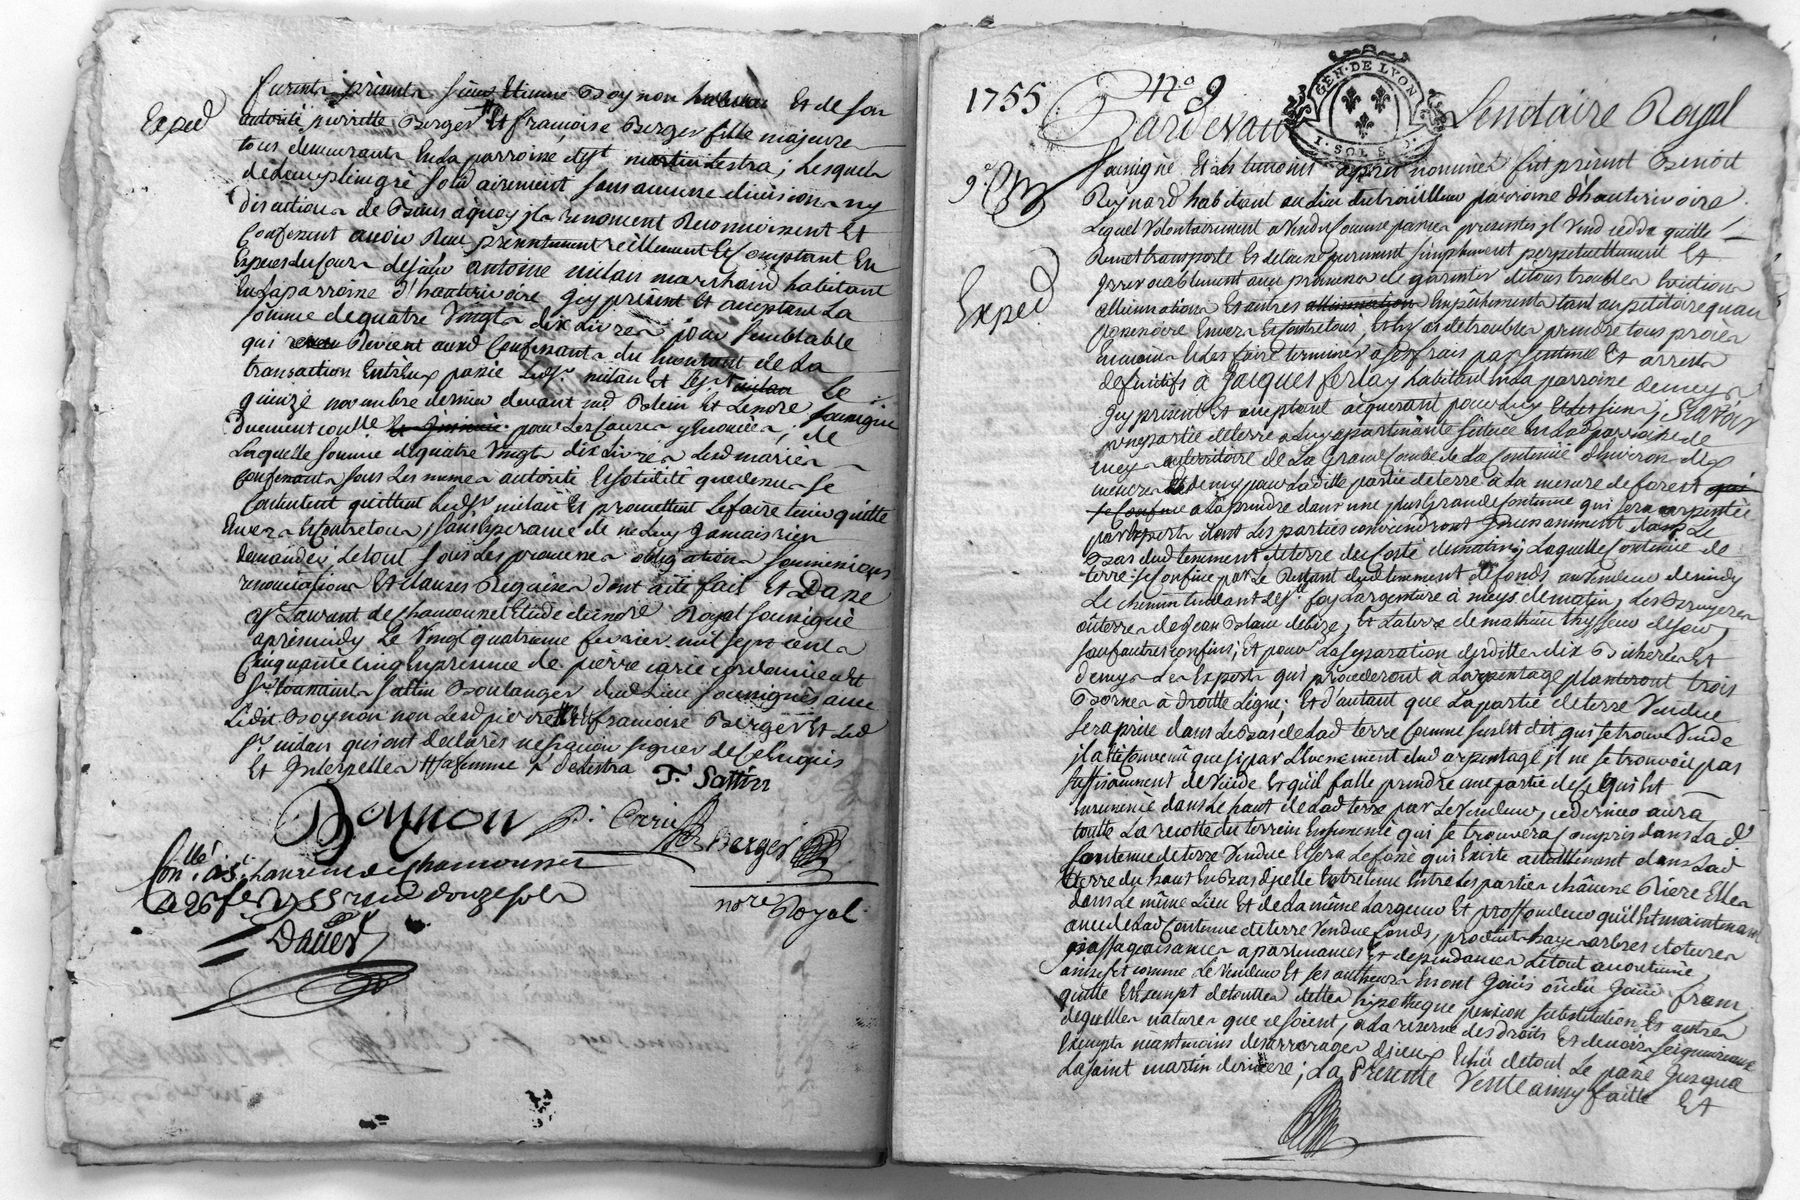 furent présents sieur Etienne Boynon et de son
Exped
autorité pierrette Berger et françoise Berger fille majeure
tous demeurants en la parroisse de st martin Lestra; Lesquels
de leurs bon gré solidairement sans aucune division ny
discution de Biens à quoy ils renoncent Reconnoissent et
Confessent avoir Reçu presentement réellement et comptant En
Espèces du cours de sieur antoine milan marchand habitant
En la parroisse d'hauterivoire Icy present et acceptant La
somme de quatre Vingts dix Livres pour semblable
qui Revient auxd Confessants du montant de la
transaction Entreux passée Led sr milan et Le
quinze novembre dernier devant me Blein Et Le nore soussigné
Duement controllé pour Les causes y Enoncées; de
Laquelle somme de quatre Vingts dix Livres Lesd mariés
confessants sous Les memes autorité et solidité que dessus se
Contentent quittent Led sr milan Et promettent Le faire tenir quitte
Envers et Contre tous, sans Esperance de ne Luy Jamais rien
demander, Le tout sous Les promesses obligations soumissions
renonciations Et clauses Requises dont acte fait Et Passé
a st Laurent de chamousset Etude du nore Royal soussigné
après midy Le Vingt quatrieme fevrier mil sept cent
Cinquante cinq En presence de pierre carie cordonnier et
sr toussaint sattin Boulanger dud Lieu soussignés avec
Ledit Boynon non Lesd pierrette et françoise Berger Et Led
sr milan qui ont declarés ne sçavoir signer de ce Enquis
Et Interpellés sa femme de lestra T. Sattin
Boynon p. Carie
Berger
Conllé à st Laurent de Chamousset
Le 26 fer 1755 reçu douze sols
nore Royal
Daller
1755 no 9
GEN. DE LYON
1. SOL
Pardevant Le notaire Royal
soussigné Et les temoins après nommés fut présent Benoit
Reynard habitant au lieu du trouilleux parroisse d'hauterivoire
Lequel Volontairement a Vendu comme par ces presentes il Vend cedde quitte
Remet transporte Et delaisse purement simplement perpetuellement Et
Exped
Irrevocablement avec promesse de garentir de tous troubles Evictions
alliennations Et autres Empêchements tant au petitoire qu'au
possessoire Envers Et contre tous; Et En cas de troubles prendre tous procès
En mains Et Les faire terminer à ses frais par sentence Et arrests
definitifs à Jacques ferlay habitant En la parroisse de meys
Icy present Et acceptant acquerant pour Luy Et Les siens; Sçavoir
une partie de terre a Luy apartenante située En lad parroisse de
meys au territoire de La Grand Combe de La contenue d'environ dix
mesures et demy pour Ladite partie de terre à La mesure de forest
à La prendre dans une plus Grande contenue qui sera arpentée
par Experts dont Les parties conviendront Incessamment dans Le
Bas dud tenement de terre du costé de matin; Laquelle Contenue de
terre se confine par Le Restant dud tenement de fonds au Vendeur de midy
Le chemin tendant de ste foy Largentiere à meys de matin, Les Bruyeres
ou terres de Jean Blanc de bize, Et La terre de mathieu thysseur de soir,
sauf autres confins; Et pour La separation desdittes dix Bicherées Et
demy Les Experts qui procederont à L'arpentage planteront trois
Bornes à Droitte Ligne; Et d'autant que La partie de terre Vendue
sera prise dans Le Bas de Lad terre Comme sus Est dit, qui se trouve Vuide
jl a été Convenu que si par L'evenement dud arpentage jl ne se trouvoit pas
suffisamment de Vuide Et qu'il falle prendre une partie de ce qui Est
Ensemencé dans Le haut de Lad terre par Le Vendeur, ce dernier aura
toutte La recolte du terrein Ensemencé qui se trouvera Compris dans La d.
Contenue de terre Vendue Et sera Le fossé qui Existe actuellement dans Lad
terre du haut En Bas d'icelle Entretenue Entre Les parties
dans Le même Lieu Et de La même Largeur Et proffondeur qu'il Est maintenant
avec de Lad Contenue de terre Vendue fonds, produits hayes arbres clotures
passages aisances apartenances Et dependances Le tout accoutumé
ainsy Et comme Le Vendeur Et ses autheurs En ont Jouis ou dû Jouir franc
quitte Et Exempt de touttes dettes hypotheques pension substitution Et autres
de quelles natures que ce soient, à La reserve des Droits Et devoirs seigneuriaux
Exempts neantmoins des arrerages d'iceux Echus de tout Le passé Jusqu'à
La saint martin derniere; La Presente Vente ainsy faitte Et